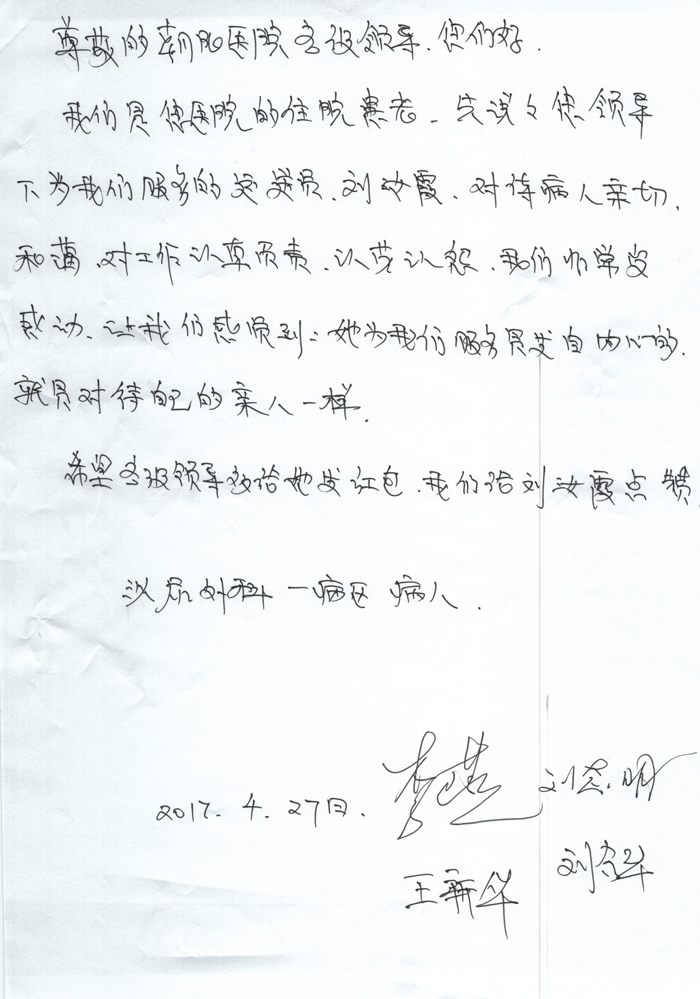 尊敬的朝阳医院各级领导.您们好.
我们是您医院的住院患者.先说说您领导
下为我们服务的运送员.刘汝霞.对待病人亲切.
和蔼.对工作认真负责.认劳认怨.我们非常受
感动.让我们感觉到:她为我们服务是发自内心的.
就是对待自己的亲人一样.
希望各级领导多给她发红包.我们给刘汝霞点赞
泌尿外科一病区 病人.
2017.4.27日.
王新华